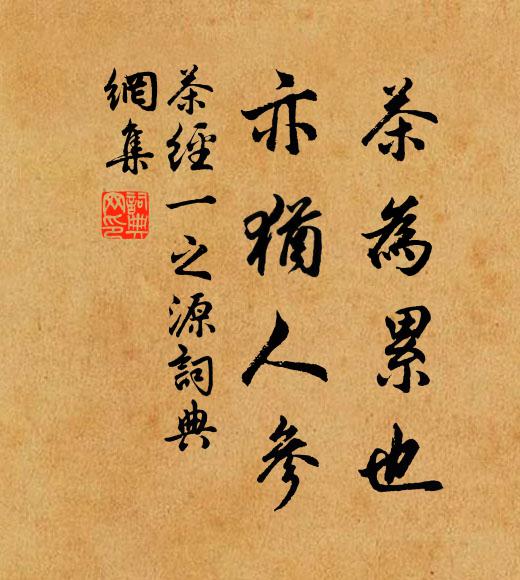 茶為累也
亦猶人參
茶經一之源詞典
網集
詞典
网印